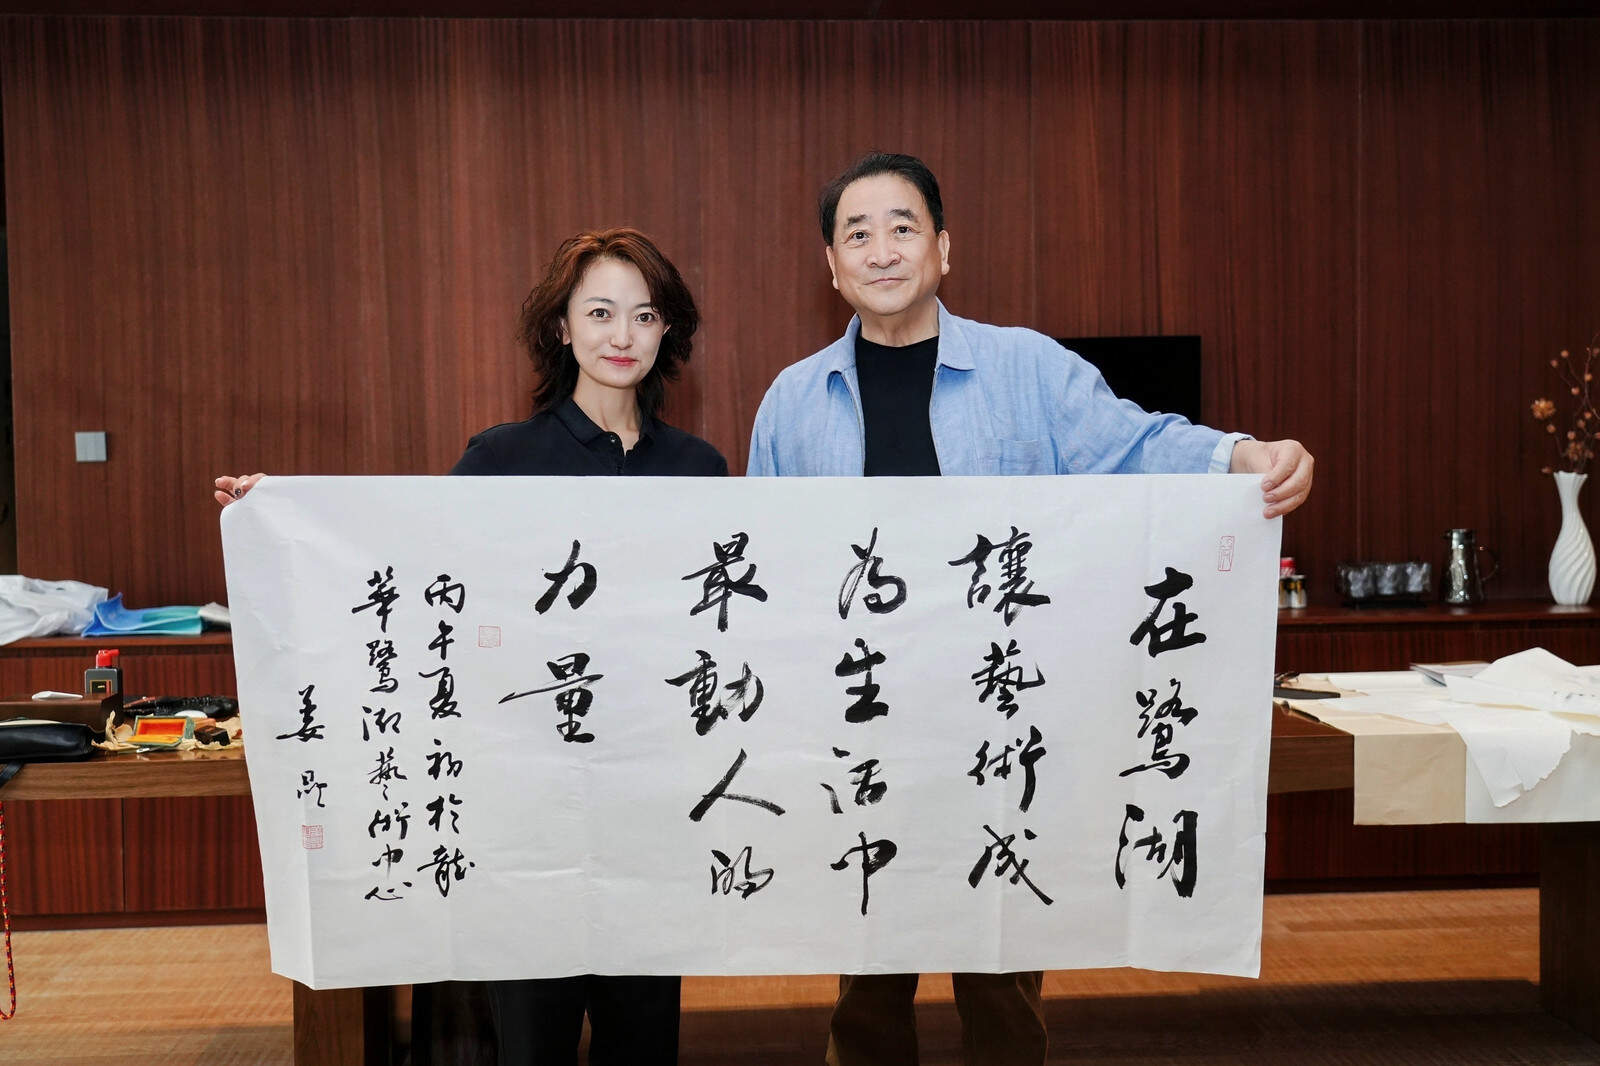 在鷺湖
讓藝術成
為生活中
最動人的
力量
丙午夏初於龍
華鷺湖藝術中心
姜